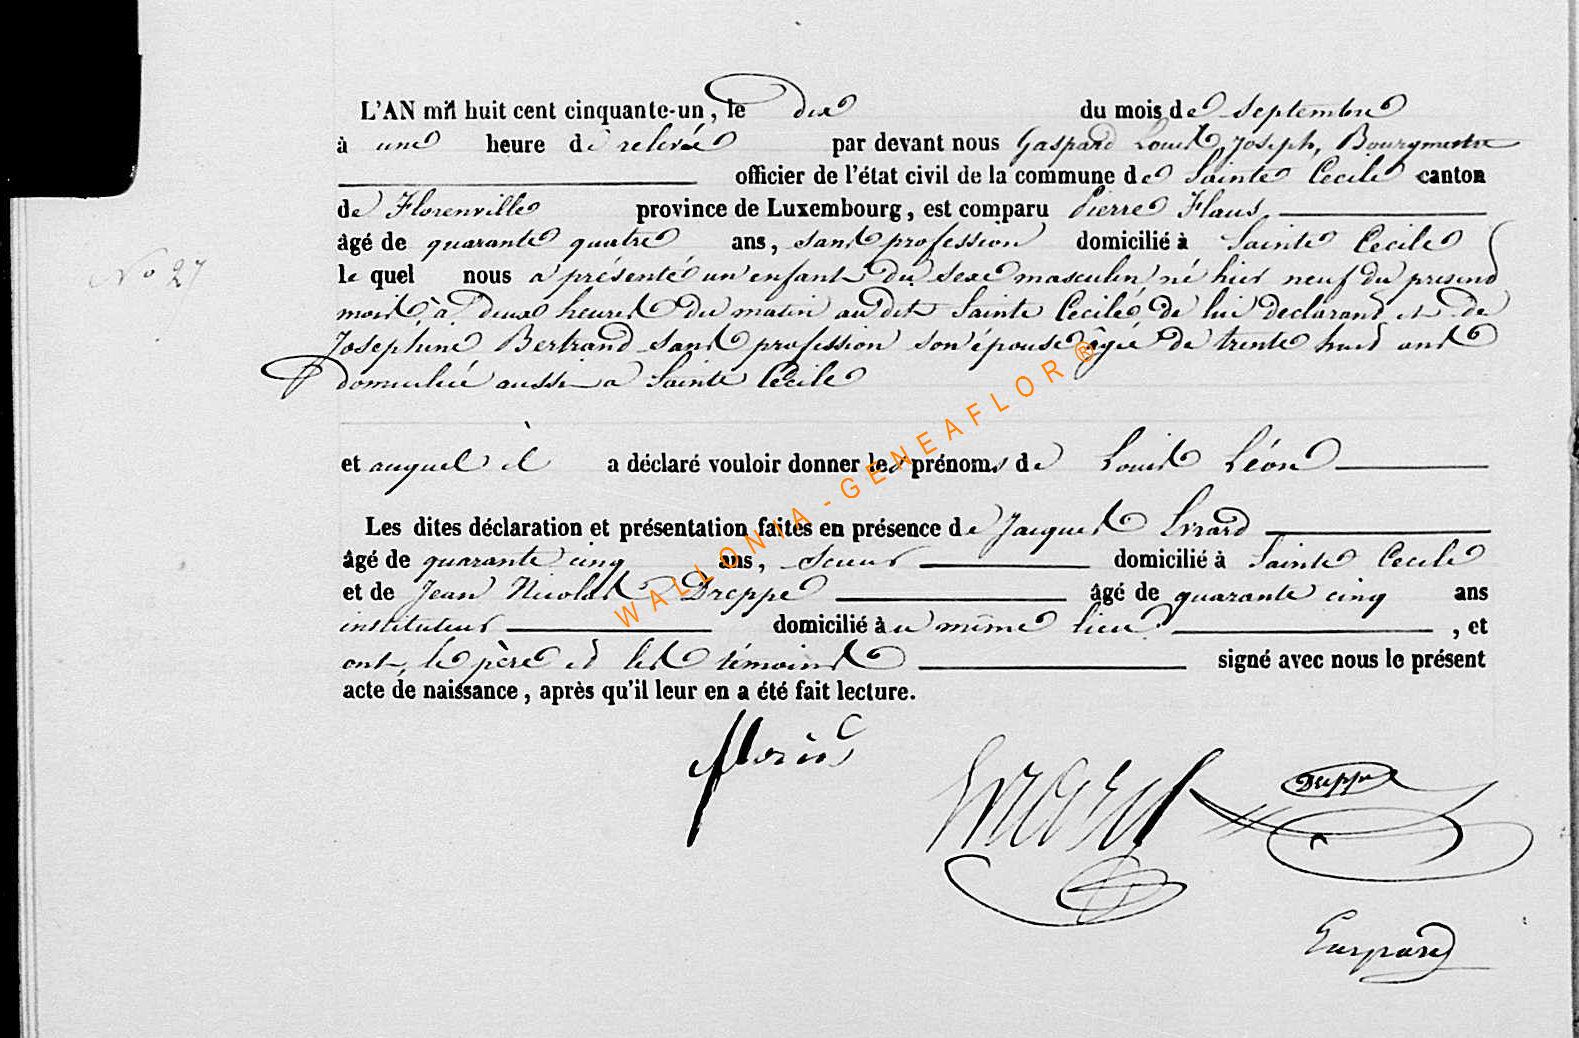 L'AN mil huit cent cinquante-un, le dix du mois de Septembre
à une heure de relevée par devant nous Gaspard Louis Joseph, Bourgmestre
officier de l'état civil de la commune de Sainte Cecile canton
de Florenville province de Luxembourg, est comparu Pierre
âgé de quarante quatre ans, sans profession domicilié à Sainte Cecile
N° 27
le quel nous a présenté un enfant du sexe masculin né hier neuf du présent
mois à deux heures du matin au dit Sainte Cecile de lui declarant et de
Josephine Bertrand sans profession son épouse âgée de trente huit ans
domiciliée aussi a Sainte Cecile
et auquel il a déclaré vouloir donner les prénoms de Louis Léon
Les dites déclaration et présentation faites en présence de Jacques Evrard
âgé de quarante cinq ans, scieur domicilié à Sainte Cecile
et de Jean Nicolas Dreppe âgé de quarante cinq ans
instituteur domicilié au même lieu, et
ont, le père et les témoins signé avec nous le présent
acte de naissance, après qu'il leur en a été fait lecture.
WALLONIA-GENEAFLOR ®
Evrard
Dreppe
Gaspard